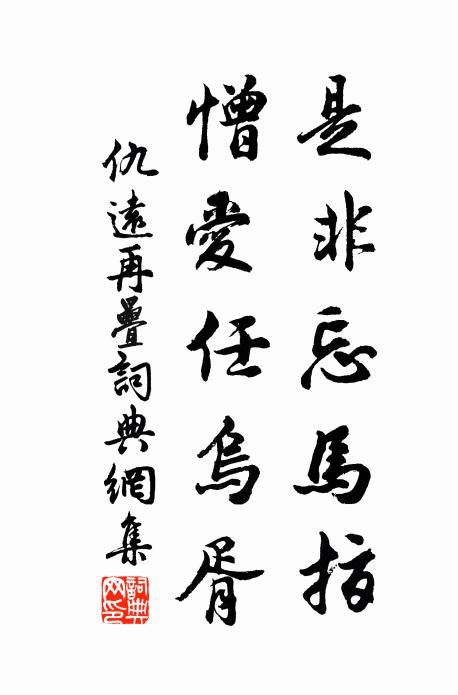 是非忘馬指
憎愛任烏胥
仇遠再疊詞典網集
詞典網印